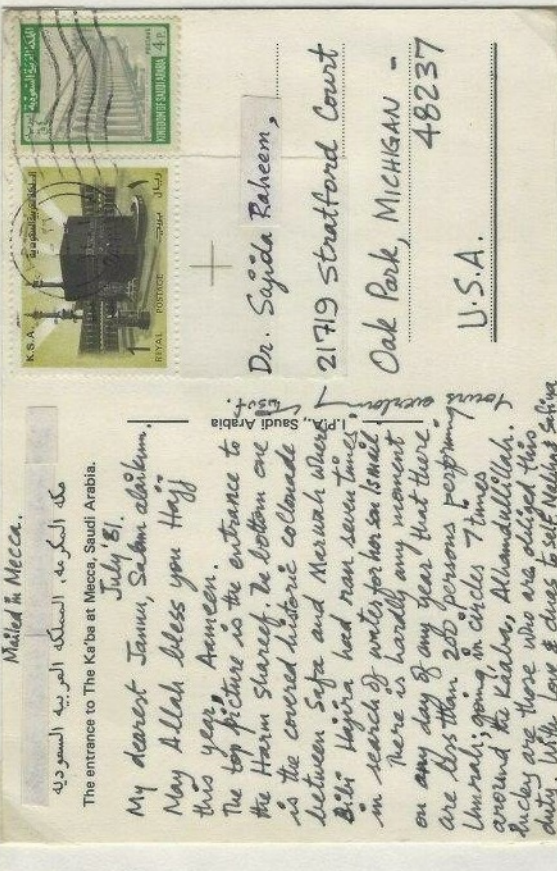 Mailed in Mecca.
مكة المكرمة، المملكة العربية السعودية
The entrance to The Ka'ba at Mecca, Saudi Arabia.
July '81.
My dearest Jannu, Salam alaikum.
May Allah bless you Hajj
this year, Aameen.
The top picture is the entrance to
the Harm shareef. The bottom one
is the covered historic collonade
between Safa and Marwah where
Bibi Hajira had ran seven times,
in search of water for her son Ismail.
There is hardly any moment
on any day of any year that there
are less than 200 persons performing
Umrah; going in circles 7 times
around the Kaaba, Alhamdullillah.
Lucky are those who are obliged this
duty. With love & dua to self
I.P.A., Saudi Arabia
K.S.A.
المملكة العربية السعودية
1
RIYAL
POSTAGE
بريد
ريال
المملكة العربية السعودية
POSTAGE
4 P.
KINGDOM OF SAUDI ARABIA
Dr. Sajida Raheem,
21719 Stratford Court
Oak Park, MICHIGAN -
48237
U.S.A.